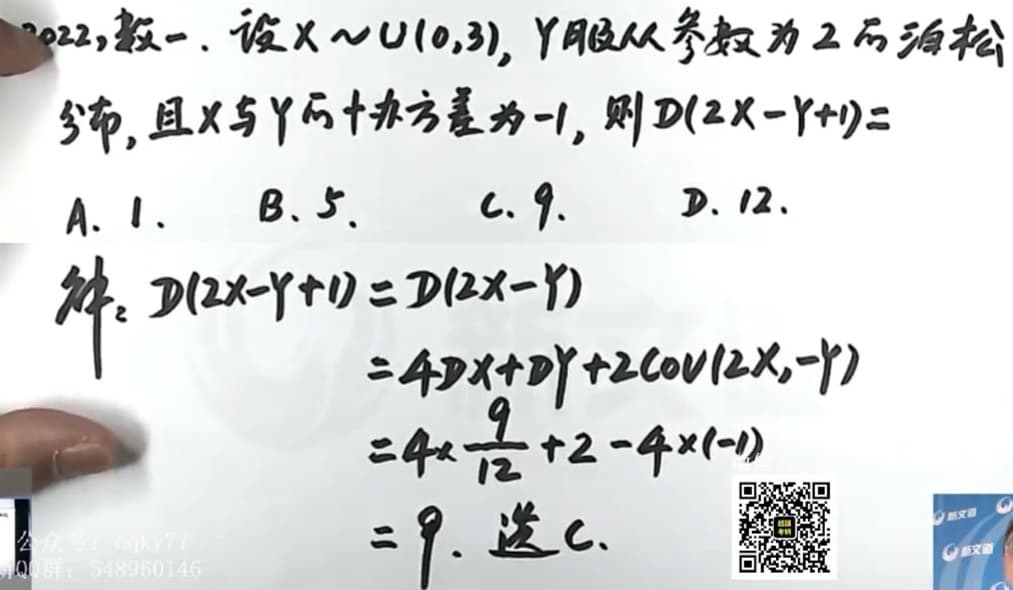 2022,数一. 设X~U(0,3), Y服从参数为2的泊松
分布,且X与Y的协方差为-1, 则D(2X-Y+1)=
A. 1. B. 5. C. 9. D. 12.
解: D(2X-Y+1)=D(2X-Y)
=4DX+DY+2Cov(2X,-Y)
=4×9/12+2-4×(-1)
=9. 选C.
新文道
新文道
QQ群: 548960146